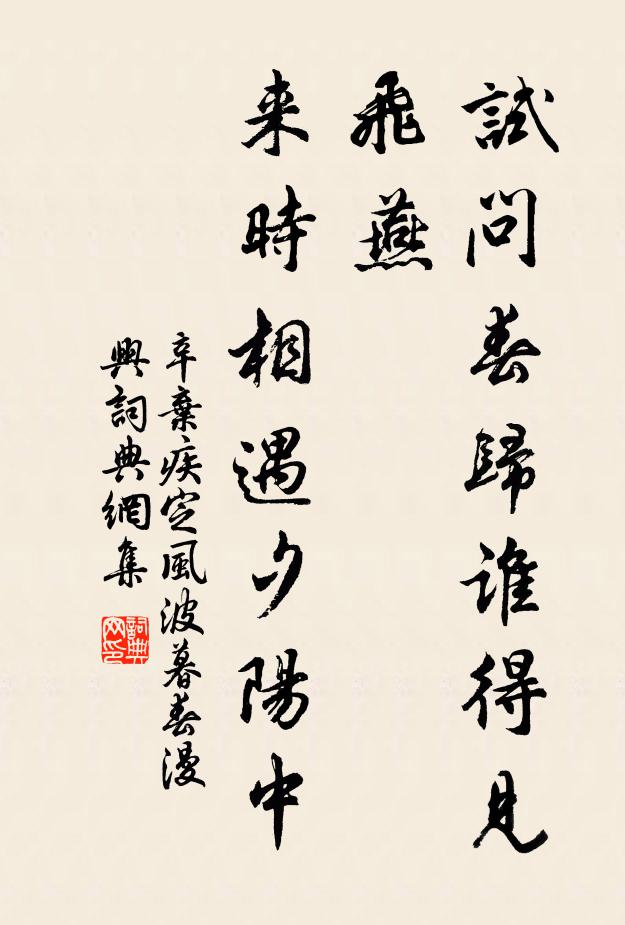 試問春歸誰得見
飛燕
来時相遇夕陽中
辛棄疾定風波暮春漫
興詞典網集
詞典
网印